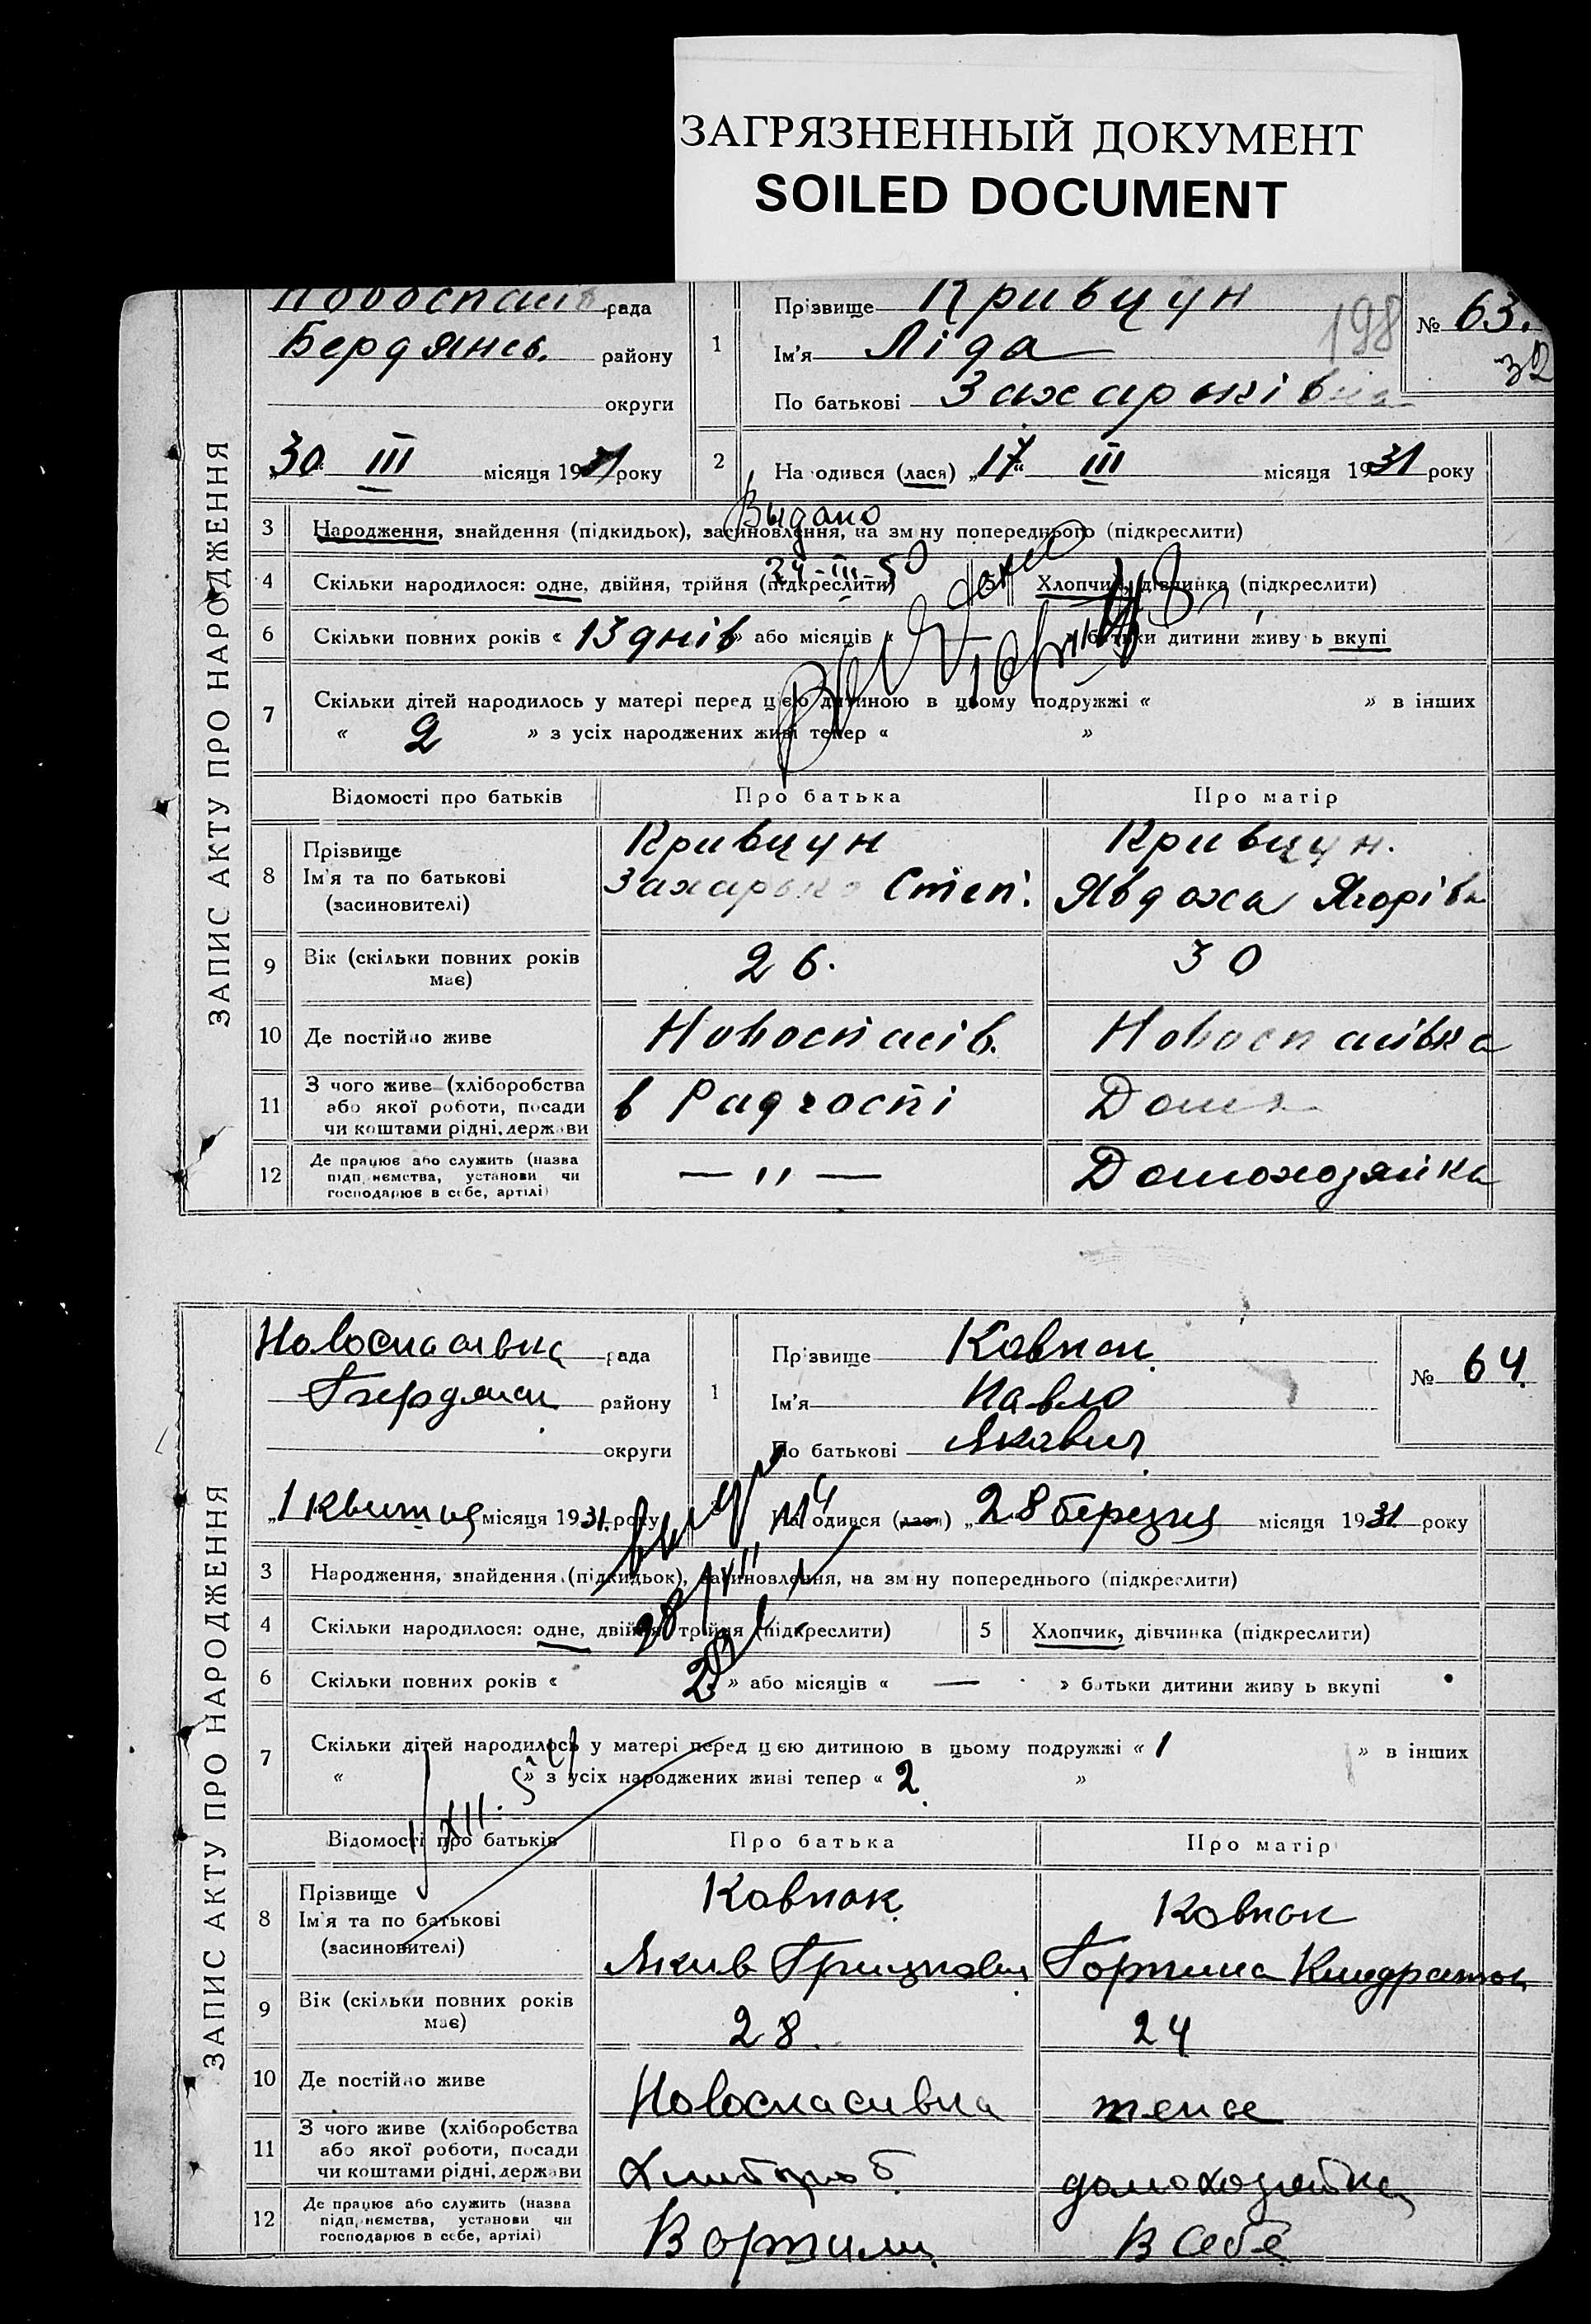 ЗАГРЯЗНЕННЫЙ ДОКУМЕНТ
SOILED DOCUMENT
ЗАПИС АКТУ ПРО НАРОДЖЕННЯ
Новоспасів рада
Бердянсь. району
округи
1
Прізвище Кривцун
Ім'я Ліда
По батькові Захарьківна
198
№ 63.
32
„30 III місяця 1931 року
2
Народився (лася) „17“ III місяця 1931 року
Выдано
3 Народження, знайдення (підкидьок), засиновлення, на зміну попереднього (підкреслити)
24-III-50
4 Скільки народилося: одне, двійня, трійня (підкреслити) 5 Хлопчик, дівчинка (підкреслити)
6 Скільки повних років « 13 днів » або місяців « » батьки дитини живуть вкупі
7 Скільки дітей народилось у матері перед цією дитиною в цьому подружжі « » в інших
« 2 » з усіх народжених живі тепер « »
Відомості про батьків Про батька Про матір
8 Прізвище Ім'я та по батькові (засиновителі)
Кривцун Кривцун.
Захарько Степ. Явдоха Ягорівн
9 Вік (скільки повних років має) 26. 30
10 Де постійно живе Новоспасів. Новоспасівка
11 З чого живе (хліборобства
або якої роботи, посади
чи коштами рідні, держави
в Радгоспі
12 Де працює або служить (назва
підприємства, установи чи
господарює в себе, артілі)
— " — Домохозяйка
ЗАПИС АКТУ ПРО НАРОДЖЕННЯ
Новоспасівка рада
Бердянськ району
округи
1
Прізвище Ковпак
Ім'я Павло
По батькові Якович
№ 64.
„1 квитня місяця 1931. року
Народився (лася) „28 березня місяця 1931 року
3 Народження, знайдення (підкидьок), засиновлення, на зміну попереднього (підкреслити)
4 Скільки народилося: одне, двійня, трійня (підкреслити) 5 Хлопчик, дівчинка (підкреслити)
6 Скільки повних років « » або місяців « — » батьки дитини живуть вкупі
7 Скільки дітей народилось у матері перед цією дитиною в цьому подружжі « 1 » в інших
« » з усіх народжених живі тепер « 2. »
Відомості про батьків Про батька Про матір
8 Прізвище Ім'я та по батькові (засиновителі)
Ковпак Ковпак
Якив Грицкович Горпина
9 Вік (скільки повних років має) 28. 24
10 Де постійно живе Новоспасивка теж
11 З чого живе (хліборобства
або якої роботи, посади
чи коштами рідні, держави
Хлибороб домохозяйка
12 Де працює або служить (назва
підприємства, установи чи
господарює в себе, артілі)
В артили В себе